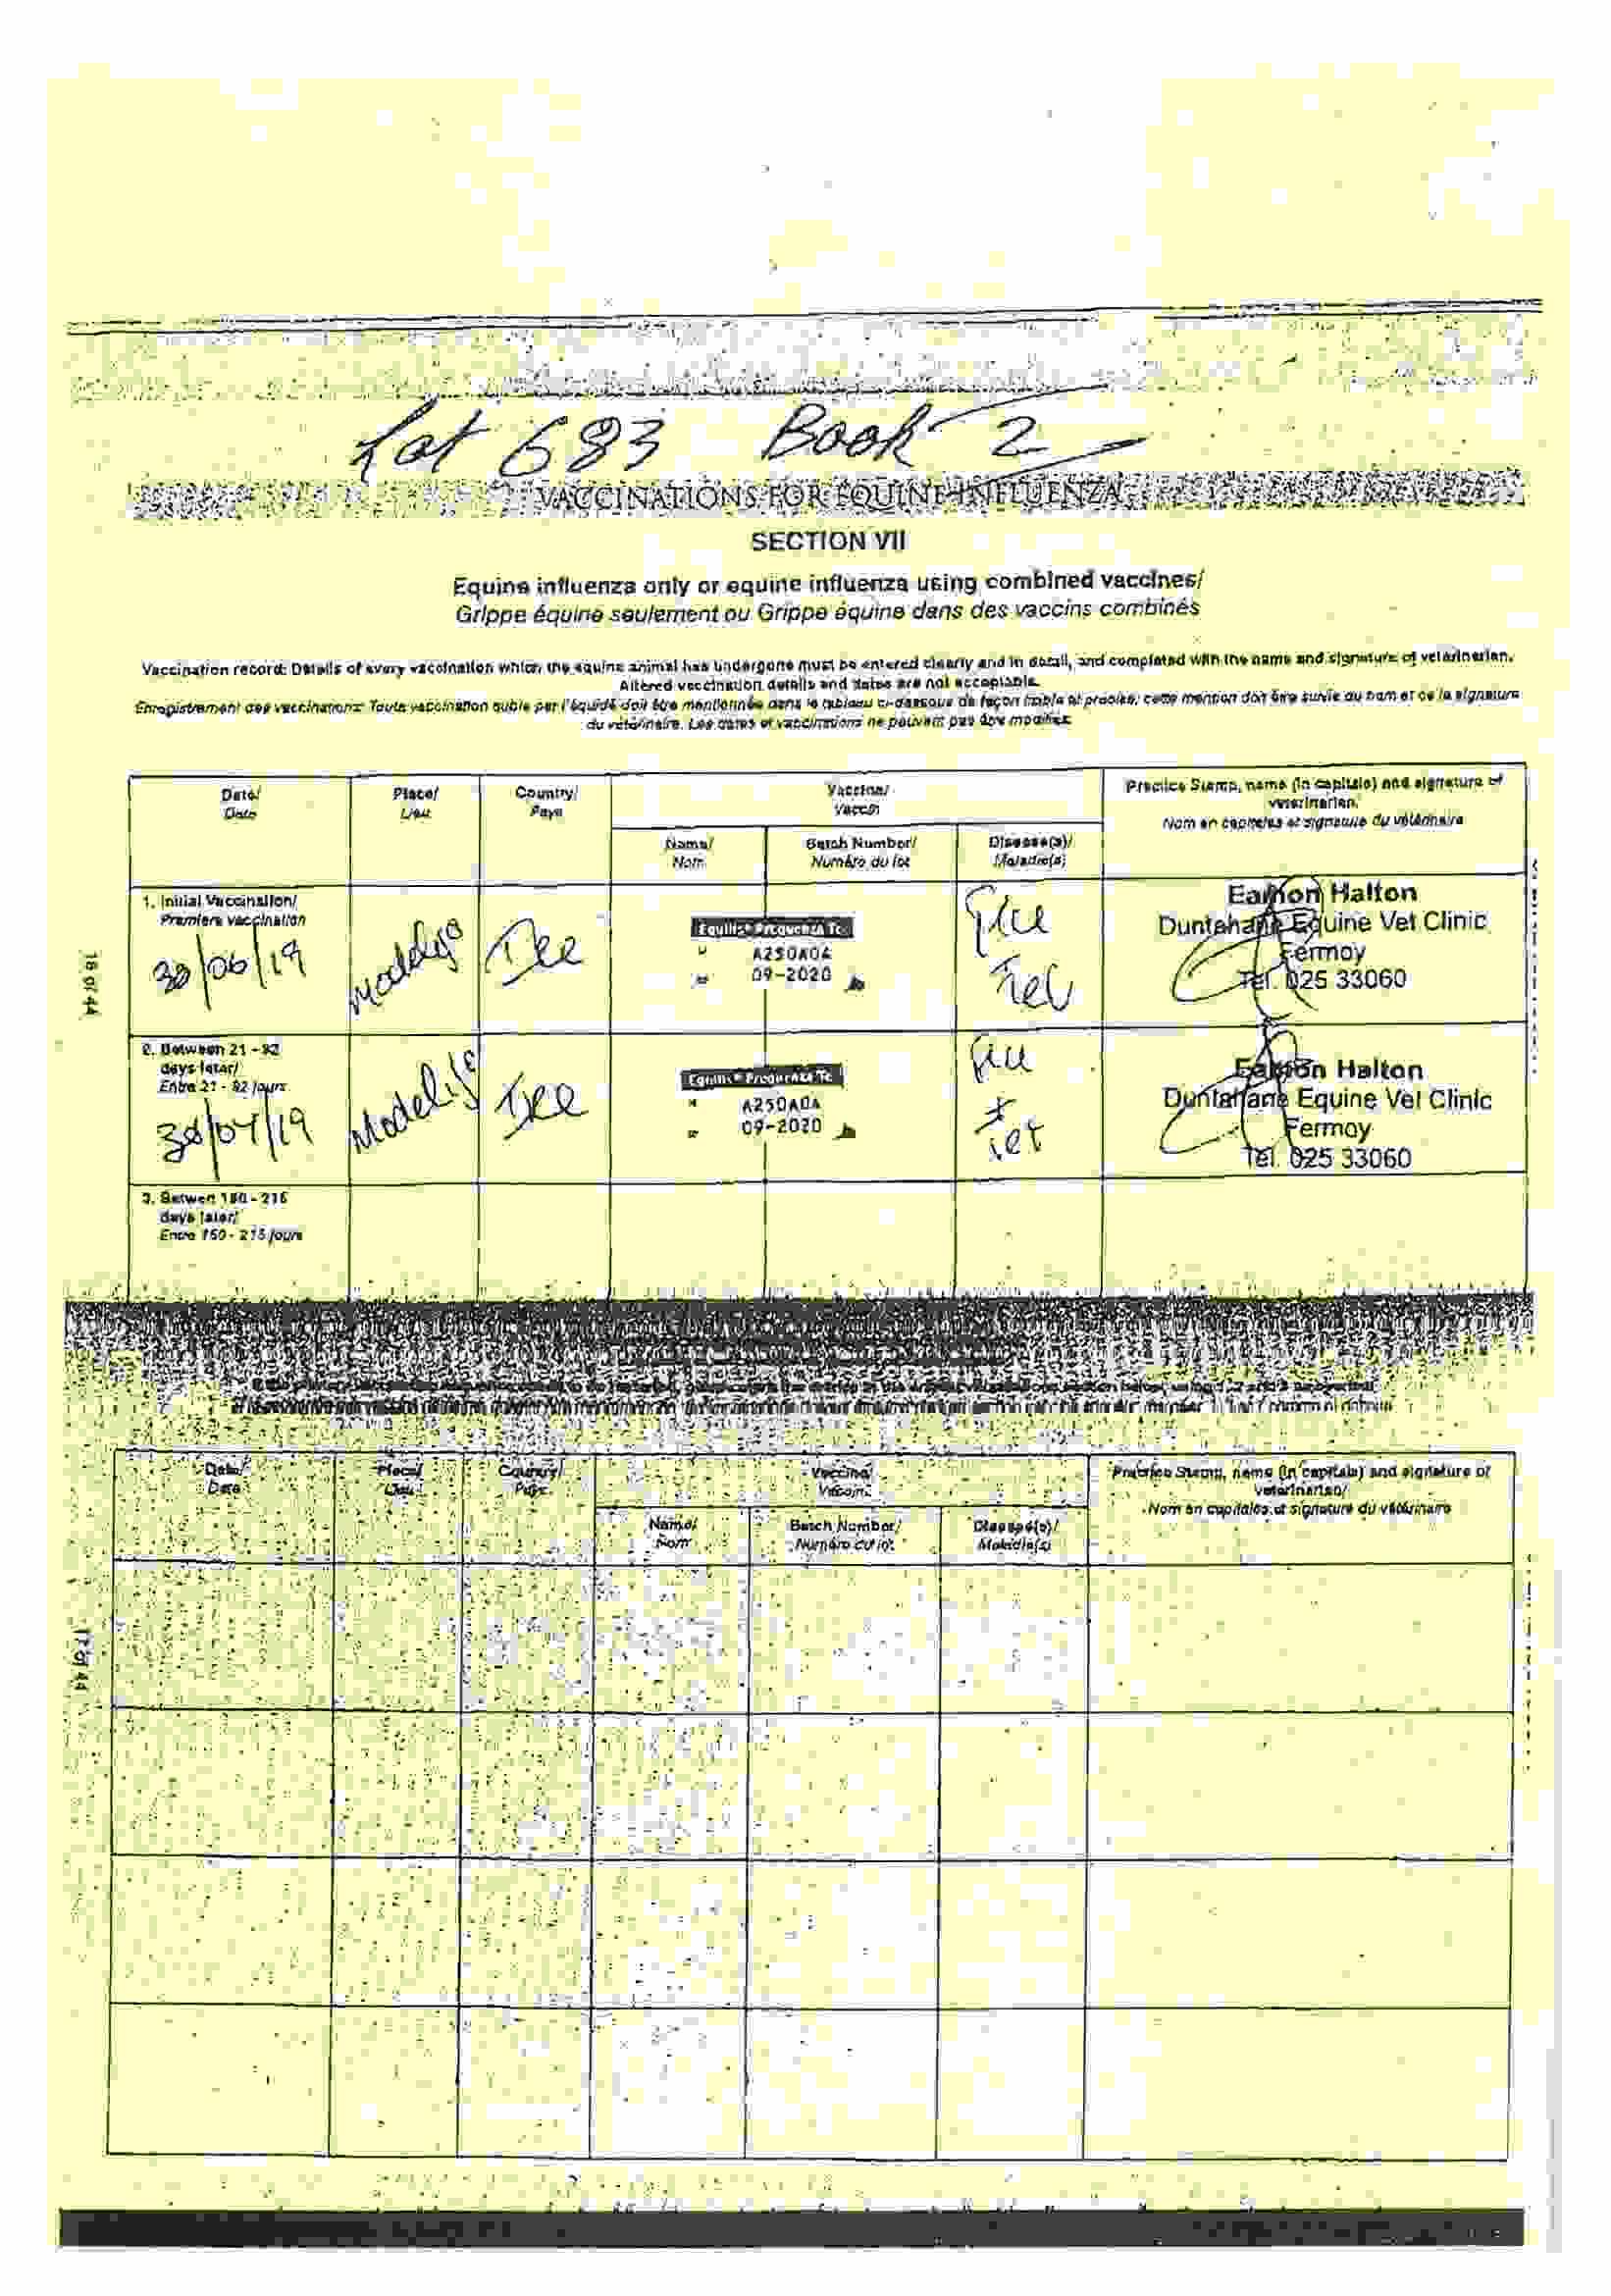 Lot 683 Book 2
VACCINATIONS FOR EQUINE INFLUENZA
SECTION VII
Equine influenza only or equine influenza using combined vaccines/
Grippe équine seulement ou Grippe équine dans des vaccins combinés
Vaccination record: Details of every vaccination which the equine animal has undergone must be entered clearly and in detail, and completed with the name and signature of veterinarian.
Altered vaccination details and dates are not acceptable.
Enregistrement des vaccinations: Toute vaccination subie par l'équidé doit être mentionnée dans le tableau ci-dessous de façon lisible et précise; cette mention doit être suivie du nom et de la signature
du vétérinaire. Les dates et vaccinations ne peuvent pas être modifiés.
Date/ Place/ Country/ Vaccine/ Practice Stamp, name (in capitals) and signature of
Date Lieu Pays Vaccin veterinarian/
Nom en capitales et signature du vétérinaire
Name/ Batch Number/ Disease(s)/
Nom Numéro du lot Maladie(s)
1. Initial Vaccination/ Eamon Halton
Premiere vaccination Duntahane Equine Vet Clinic
30/06/19 Ire Equilis Prequenza Te Flu Fermoy
A250A04 Tet Tel. 025 33060
09-2020
2. Between 21 - 92 Eamon Halton
days later/ Duntahane Equine Vet Clinic
Entre 21 - 92 jours Equilis Prequenza Te Flu Fermoy
30/07/19 Ire A250A04 + Tel. 025 33060
09-2020 Tet
3. Betwen 150 - 215
days later/
Entre 150 - 215 jours
16 of 44
Date/ Place/ Country/ Vaccine/ Practice Stamp, name (in capitals) and signature of
Date Lieu Pays Vaccin veterinarian/
Nom en capitales et signature du vétérinaire
Name/ Batch Number/ Disease(s)/
Nom Numéro du lot Maladie(s)
17 of 44